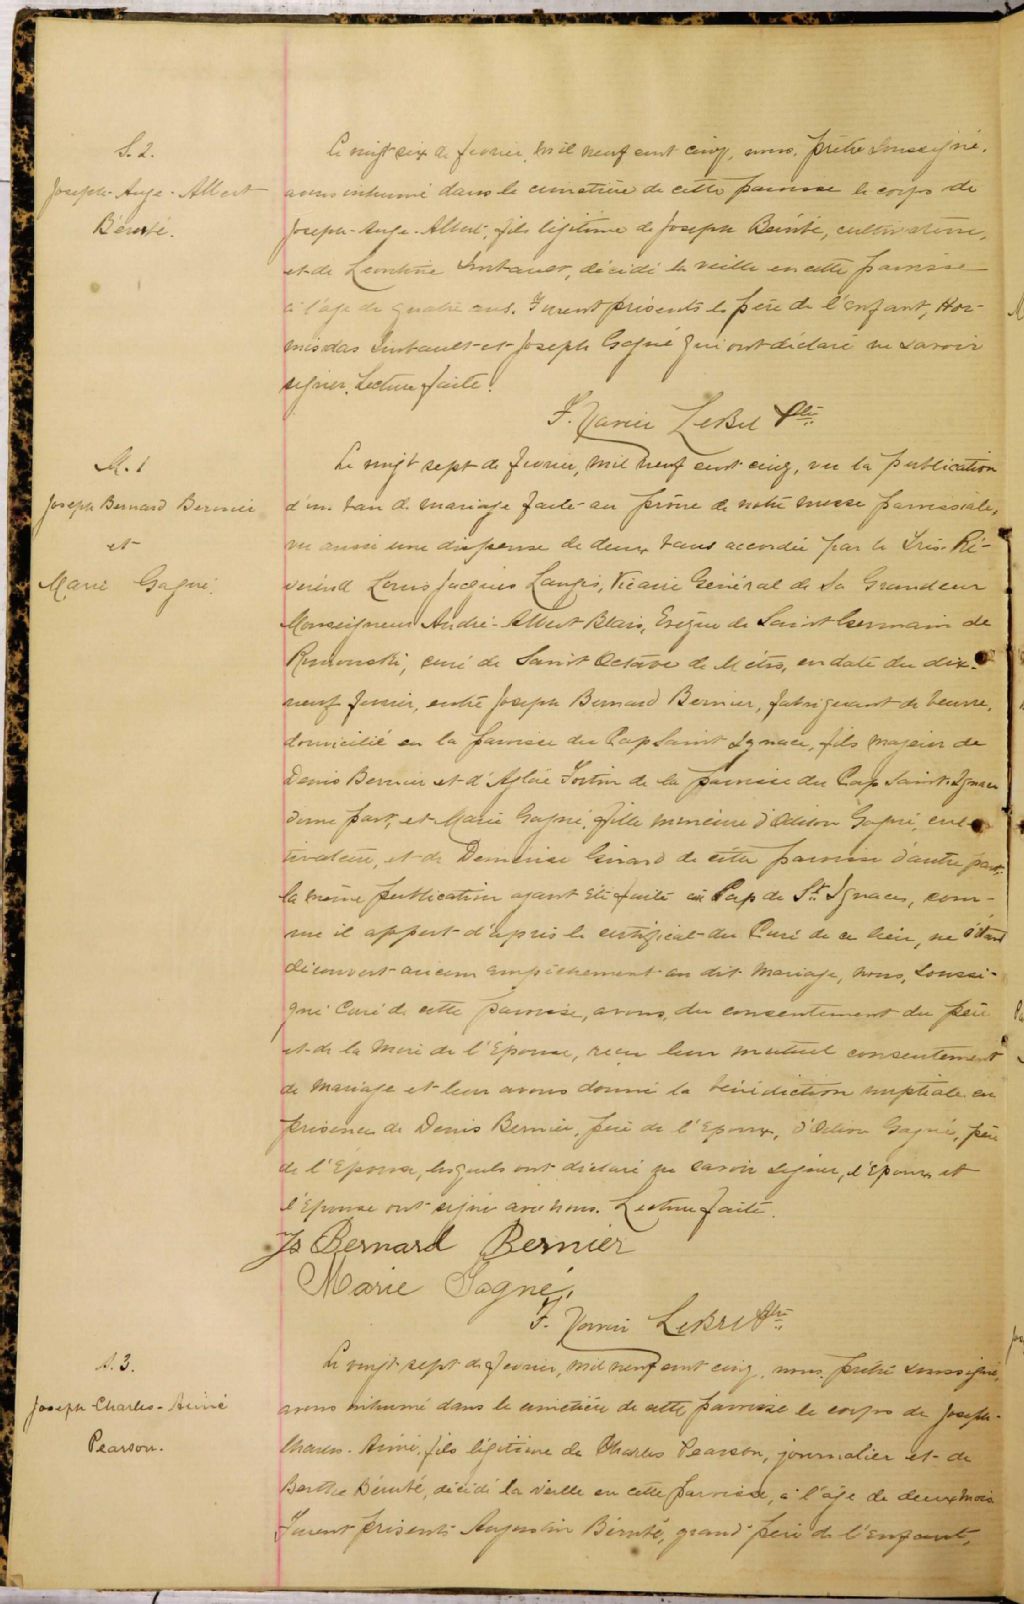 S. 2.
Joseph-Ange-Albert
Bérubé.
Le vingt six de février, mil neuf cent cinq, nous, prêtre soussigné,
avons inhumé dans le cimetière de cette paroisse le corps de
Joseph-Ange-Albert, fils légitime de Joseph Bérubé, cultivateur,
et de Léontine Imbault, décédé la veille en cette paroisse
à l'âge de quatre ans. Furent présents le père de l'enfant, Hor-
misdas Imbault et Joseph Gagné qui ont déclaré ne savoir
signer. Lecture faite.
F. Xavier LeBel Ptre
M. 1
Joseph Bernard Bernier
et
Marie Gagné.
Le vingt sept de février, mil neuf cent cinq, vu la publication
d'un ban de mariage faite au prône de notre messe paroissiale,
vu aussi une dispense de deux bans accordée par le Très-Ré-
vérend Louis Jacques Langis, Vicaire Général de Sa Grandeur
Monseigneur André-Albert Blais, Evêque de Saint Germain de
Rimouski, curé de Saint Octave de Métis, en date du dix-
neuf février, entre Joseph Bernard Bernier, fabriquant de beurre,
domicilié en la paroisse du Cap Saint Ignace, fils majeur de
Denis Bernier et d'Aglaé Fortin de la paroisse du Cap Saint-Ignace
d'une part, et Marie Gagné, fille mineure d'Odilon Gagné, cul-
tivateur, et de Démerise Girard de cette paroisse d'autre part,
la même publication ayant été faite au Cap de St Ignace, com-
me il appert d'après le certificat du Curé de ce lieu, ne s'étant
découvert aucun empêchement au dit mariage, nous, soussi-
gné Curé de cette paroisse, avons, du consentement du père
et de la mère de l'Épouse, reçu leur mutuel consentement
de mariage et leur avons donné la bénédiction nuptiale en
présence de Denis Bernier, père de l'Epoux, d'Odilon Gagné, père
de l'Épouse, lesquels ont déclaré ne savoir signer, l'Epoux et
l'Epouse ont signé avec nous. Lecture faite.
Js Bernard Bernier
Marie Gagné,
F. Xavier LeBel Ptre
S. 3.
Joseph Charles-Aimé
Pearson.
Le vingt-sept de février, mil neuf cent cinq, nous, prêtre soussigné,
avons inhumé dans le cimetière de cette paroisse le corps de Joseph-
Charles-Aimé, fils légitime de Charles Pearson, journalier et de
Berthe Bérubé, décédé la veille en cette paroisse, à l'âge de deux mois
Furent présents Augustin Bérubé, grand-père de l'enfant,